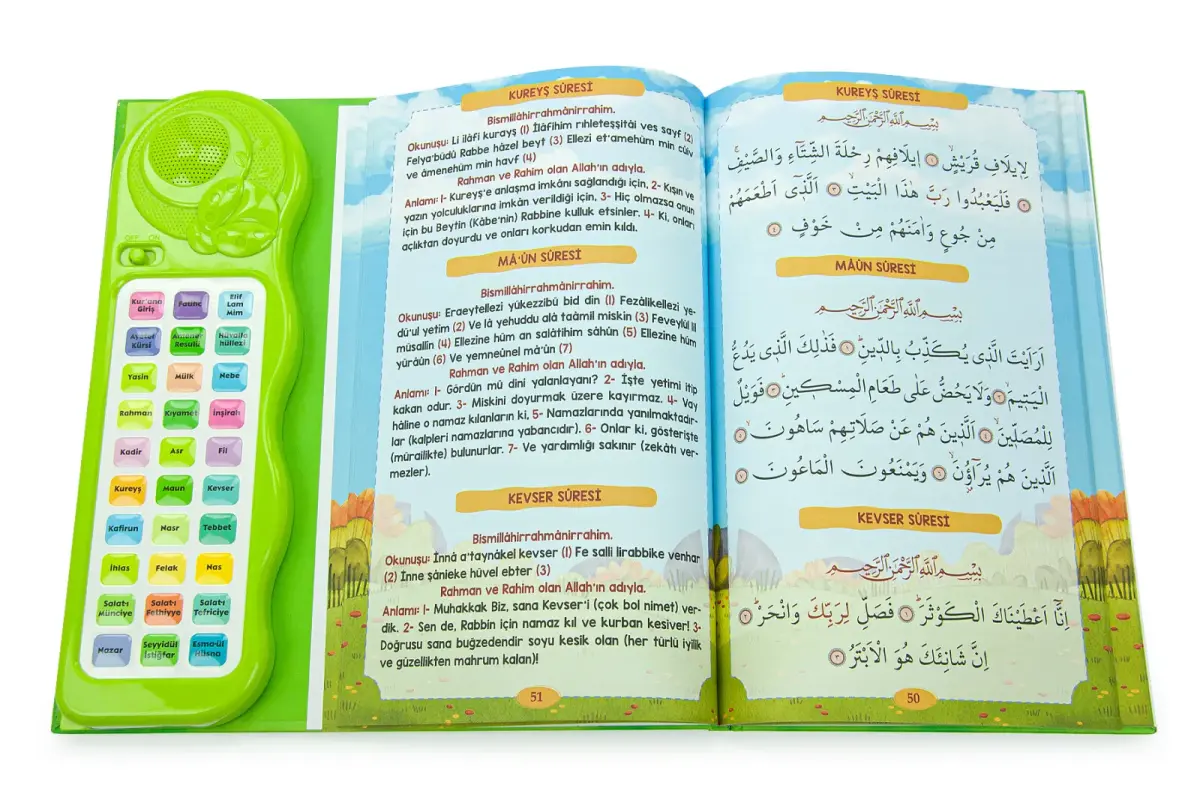 OFF ON
Kur'an'a Giriş
Fatiha
Elif Lam Mim
Ayetel Kürsi
Amener Resulü
Hüvalla hüllezi
Yasin
Mülk
Nebe
Rahman
Kıyamet
İnşirah
Kadir
Asr
Fil
Kureyş
Maun
Kevser
Kafirun
Nasr
Tebbet
İhlas
Felak
Nas
Salat-ı Münciye
Salat-ı Fethiyye
Salat-ı Tefriciye
Nazar
Seyyidül İstiğfar
Esma-ül Hüsna
KUREYŞ SÛRESİ
Bismillâhirrahmânirrahim.
Okunuşu: Li ilâfi kurayş (1) İlâfihim rıhleteşşitâi ves sayf (2)
Felya'büdû Rabbe hâzel beyt (3) Ellezi et'amehüm min cûiv
ve âmenehüm min havf (4)
Rahman ve Rahim olan Allah'ın adıyla.
Anlamı: 1- Kureyş'e anlaşma imkânı sağlandığı için, 2- Kışın ve
yazın yolculuklarına imkân verildiği için, 3- Hiç olmazsa onun
için bu Beytin (Kâbe'nin) Rabbine kulluk etsinler. 4- Ki, onları
açlıktan doyurdu ve onları korkudan emin kıldı.
MÂ'ÛN SÛRESİ
Bismillâhirrahmânirrahim.
Okunuşu: Eraeytellezi yükezzibü bid din (1) Fezâlikellezi ye-
dü'ul yetim (2) Ve lâ yehuddu alâ taâmil miskin (3) Feveylül lil
müsallin (4) Ellezine hüm an salâtihim sâhûn (5) Ellezine hüm
yürâûn (6) Ve yemneûnel mâ'ûn (7)
Rahman ve Rahim olan Allah'ın adıyla.
Anlamı: 1- Gördün mü dini yalanlayanı? 2- İşte yetimi itip
kakan odur. 3- Miskini doyurmak üzere kayırmaz. 4- Vay
hâline o namaz kılanların ki, 5- Namazlarında yanılmaktadır-
lar (kalpleri namazlarına yabancıdır). 6- Onlar ki, gösterişte
(mürailikte) bulunurlar. 7- Ve yardımlığı sakınır (zekâtı ver-
mezler).
KEVSER SÛRESİ
Bismillâhirrahmânirrahim.
Okunuşu: İnnâ a'taynâkel kevser (1) Fe salli lirabbike venhar
(2) İnne şânieke hüvel ebter (3)
Rahman ve Rahim olan Allah'ın adıyla.
Anlamı: 1- Muhakkak Biz, sana Kevser'i (çok bol nimet) ver-
dik. 2- Sen de, Rabbin için namaz kıl ve kurban kesiver! 3-
Doğrusu sana buğzedendir soyu kesik olan (her türlü iyilik
ve güzellikten mahrum kalan)!
51
KUREYŞ SÛRESİ
بِسْمِ اللّٰهِ الرَّحْمٰنِ الرَّحِيمِ
لِإِيلَافِ قُرَيْشٍ ﴿١﴾ إِيلَافِهِمْ رِحْلَةَ الشِّتَاءِ وَالصَّيْفِ
﴿٢﴾ فَلْيَعْبُدُوا رَبَّ هٰذَا الْبَيْتِ ﴿٣﴾ اَلَّذِي اَطْعَمَهُمْ
مِنْ جُوعٍ وَاٰمَنَهُمْ مِنْ خَوْفٍ ﴿٤﴾
MÂÛN SÛRESİ
بِسْمِ اللّٰهِ الرَّحْمٰنِ الرَّحِيمِ
اَرَاَيْتَ الَّذِي يُكَذِّبُ بِالدِّينِ ﴿١﴾ فَذٰلِكَ الَّذِي يَدُعُّ
الْيَتِيمَ ﴿٢﴾ وَلَا يَحُضُّ عَلٰى طَعَامِ الْمِسْكِينِ ﴿٣﴾ فَوَيْلٌ
لِلْمُصَلِّينَ ﴿٤﴾ اَلَّذِينَ هُمْ عَنْ صَلَاتِهِمْ سَاهُونَ ﴿٥﴾
اَلَّذِينَ هُمْ يُرَاؤُنَ ﴿٦﴾ وَيَمْنَعُونَ الْمَاعُونَ ﴿٧﴾
KEVSER SÛRESİ
بِسْمِ اللّٰهِ الرَّحْمٰنِ الرَّحِيمِ
اِنَّا اَعْطَيْنَاكَ الْكَوْثَرَ ﴿١﴾ فَصَلِّ لِرَبِّكَ وَانْحَرْ ﴿٢﴾
اِنَّ شَانِئَكَ هُوَ الْاَبْتَرُ ﴿٣﴾
50